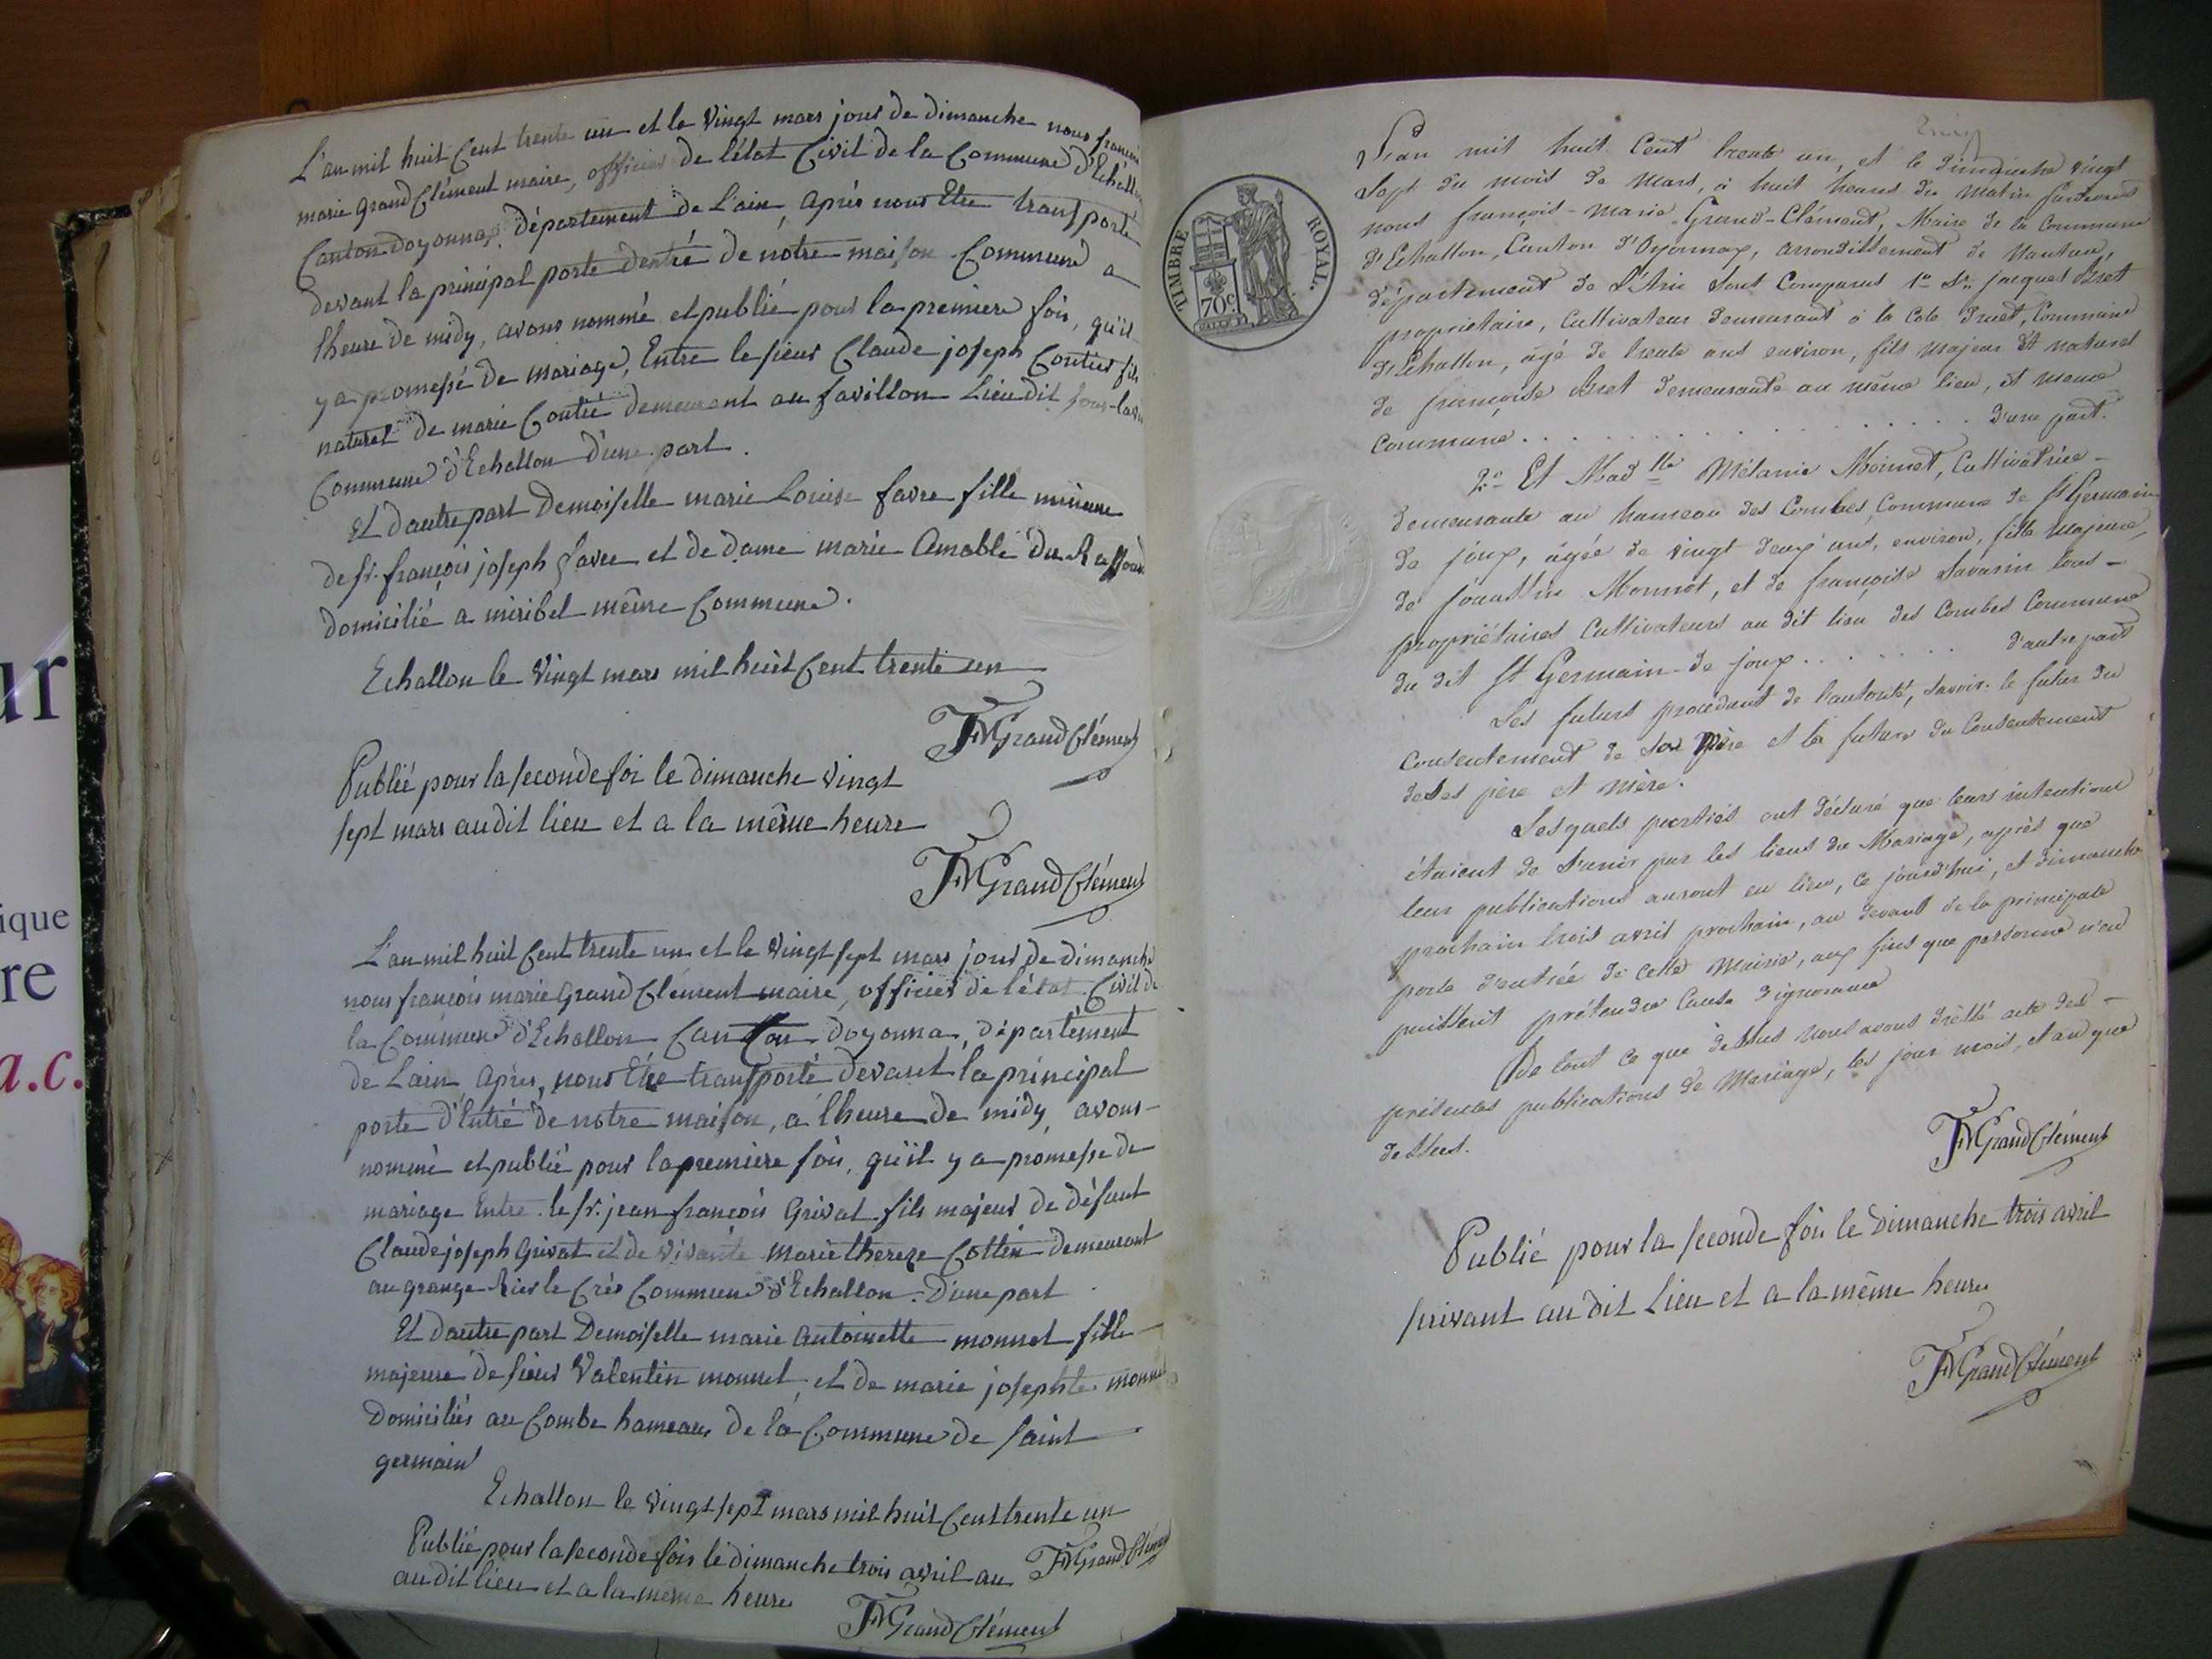 L'an mil huit Cent trente un et le vingt mars jour de dimanche nous françois
marie Grand Clément maire, officier de l'état Civil de la Commune d'Echallon
Canton doyonnax, département de L'ain, Après nous Etre transporté
devant la principal porte dentré de nôtre maison Commune a
lheure de midy, avons nommé et publié pour la premiere fois, qu'il
y a promesse de mariage, Entre le sieur Claude joseph Coutier fils
naturel de marie Coutié demeurant au favillon Lieu dit
Commune d'Echallon d'une part.
Et dautre part Demoiselle marie Louise favre fille mineure
de sr. françois joseph favre et de dame marie Amable
domicilié a miribel même Commune.
Echallon le vingt mars mil huit Cent trente un
FMGrandClément
Publié pour la seconde foi le dimanche vingt
sept mars au dit lieu et a la même heure
FMGrandClément
L'an mil huit Cent trente un et le vingt sept mars jour de dimanche
nous françois marie Grand Clément maire, officier de l'état Civil de
la Commune d'Echallon Canton doyonna, département
de Lain Après, nous Etre transporté devant la principal
porte d'Entré de notre maison, a lheure de midy avons
nommé et publié pour la premiere fois, qu'il y a promesse de
mariage Entre le sr. jean françois Grivat fils majeur de défunt
Claude joseph Grivat et de vivante marie thereze Cottin demeurant
au grange le Crès Commune d'Echallon. D'une part
Et dautre part Demoiselle marie Antoinette monnet fille
majeure de sieur Valentin monnet, et de marie josephte monnet
Domiciliés au Combe hameau de la Commune de saint
germain
Echallon le vingt sept mars mil huit Cent trente un
FMGrandClément
Publié pour la seconde fois le dimanche trois avril au
au dit lieu et a la même heure
FMGrandClément
TIMBRE ROYAL.
70c.
L'an mil huit Cent trente un, et le dimanche vingt
Sept du mois de Mars, à huit heures du matin pardevant
nous françois-marie Grand-Clément, Maire de la Commune
d'Echallon, Canton d'Oyonnax, arrondissement de Nantua,
département de L'Ain Sont Comparus 1º Sr. jacques Bret
propriétaire, Cultivateur demeurant à la Cote Druet, Commune
d'Echallon, âgé de trente ans environ, fils majeur Et naturel
de françoise Bret demeurante au même lieu, Et même
Commune . . . . . . . . . . . . . . . . d'une part.
2º Et Madlle Mélanie Monnet, Cultivatrice
demeurante au hameau des Combes, Commune de St Germain
de joux, âgée de vingt deux ans, environ, fille Majeure,
de Monnet, et de françoise Savarin tous
propriétaires Cultivateurs au dit lieu des Combes Commune
du dit St Germain-de joux . . . . . . . d'autre part
Les futurs procédant de l'autorité, Savoir. le futur du
Consentement de Sa Mère et la future du Consentement
de Ses père et mère.
Lesquels parties ont déclaré que leurs intentions
étaient de S'unir par les liens du Mariage, après que
leur publications auront eu lieu, ce jourd'hui, et dimanche
prochain trois avril prochain, au devant de la principale
porte d'entrée de cette Mairie, aux fins que personne n'en
puissent prétendre Cause d'ignorance
De tout ce que dessus nous avons dressé acte des
présentes publications de Mariage, les jour mois, et an que
dessus.
FMGrandClément
Publié pour la seconde fois le dimanche trois avril
suivant au dit Lieu et a la même heure
FMGrandClément
ur
ique
re
a.c.